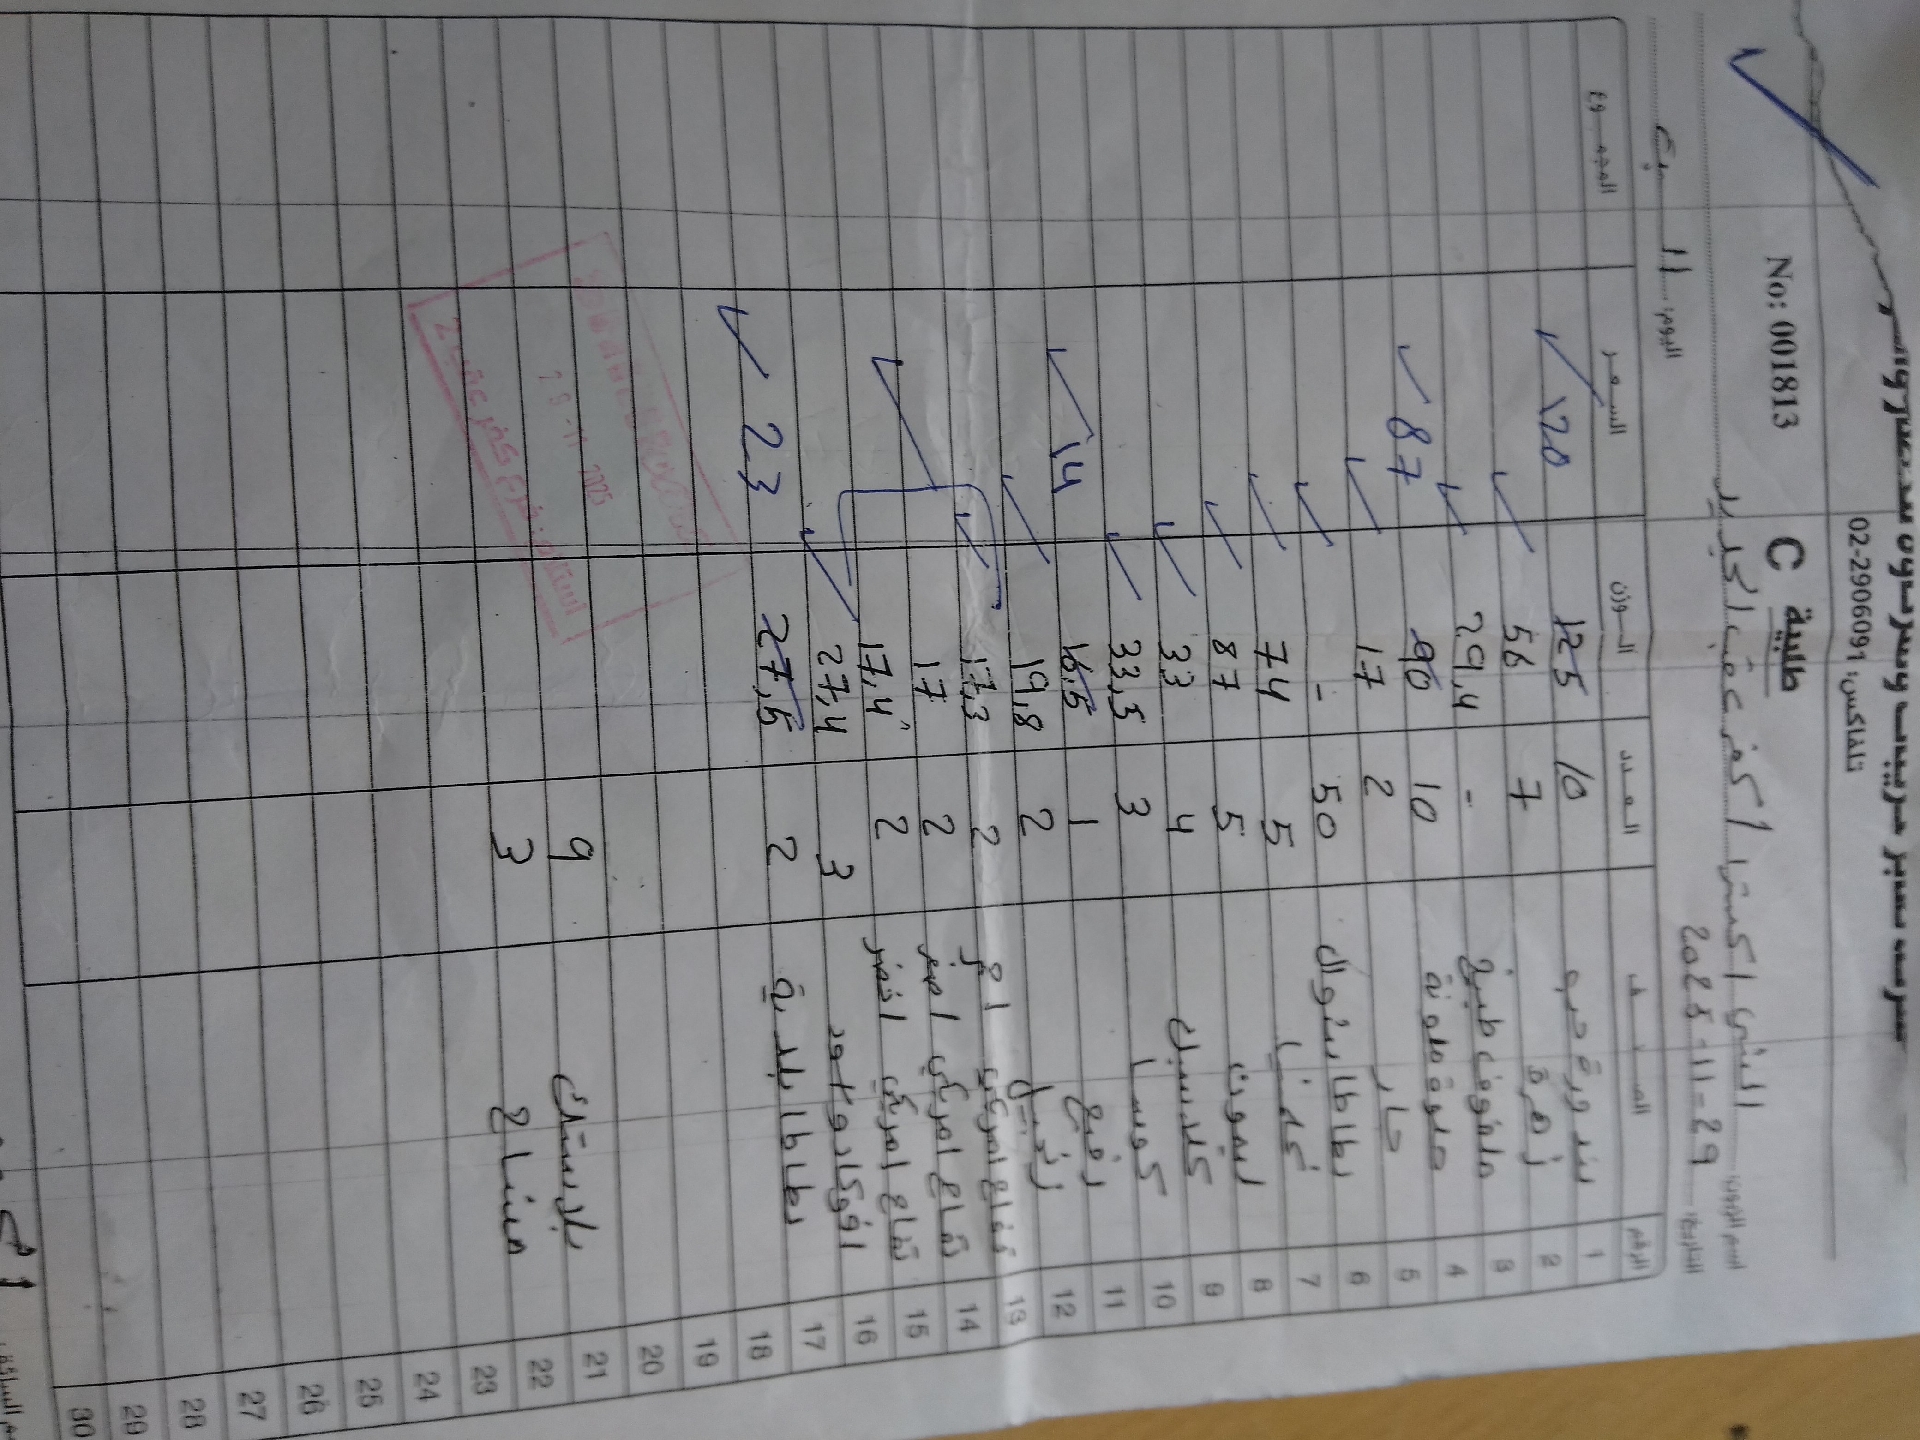 تلفاكس: 02-2906091
No: 001813
طلبية C
اسم الزبون: البني اكسترا / كفر عقب / كبير
التاريخ: 2025-11-29
اليوم: السبت
الرقم الصنف العدد الوزن السعر المجموع
1 بندورة حبه 10 125 120
2 زهرة 7 56
3 ملفوف طبيخ - 29,4
4 ملوة ملونة 10 90 87
5 حار 2 17
6 بطاطا بينوال 50 -
7 5 74
8 ليمون 5 87
9 كلاسيك 4 33
10 كوسا 3 33,5
11 رفيع 1 16,5 14
12 زنجبيل 2 19,8
13 تفاح امريكي احمر 2 17,3
14 تفاح امريكي اصفر 2 17
15 تفاح امريكي اخضر 2 17,4
16 افوكادو اسود 3 27,4
17 بطاطا بلدية 2 27,5 23
18
19
20
21 بلاستيك 9
22 مشتاح 3
23
24
25
26
27
28
29
30
29-11-2025
استلام: فرع كفر عقب 2